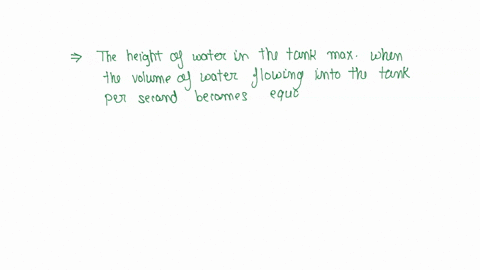 ⇒ The height of water in the tank max. when
the volume of water flowing into the tank
per second becomes equa